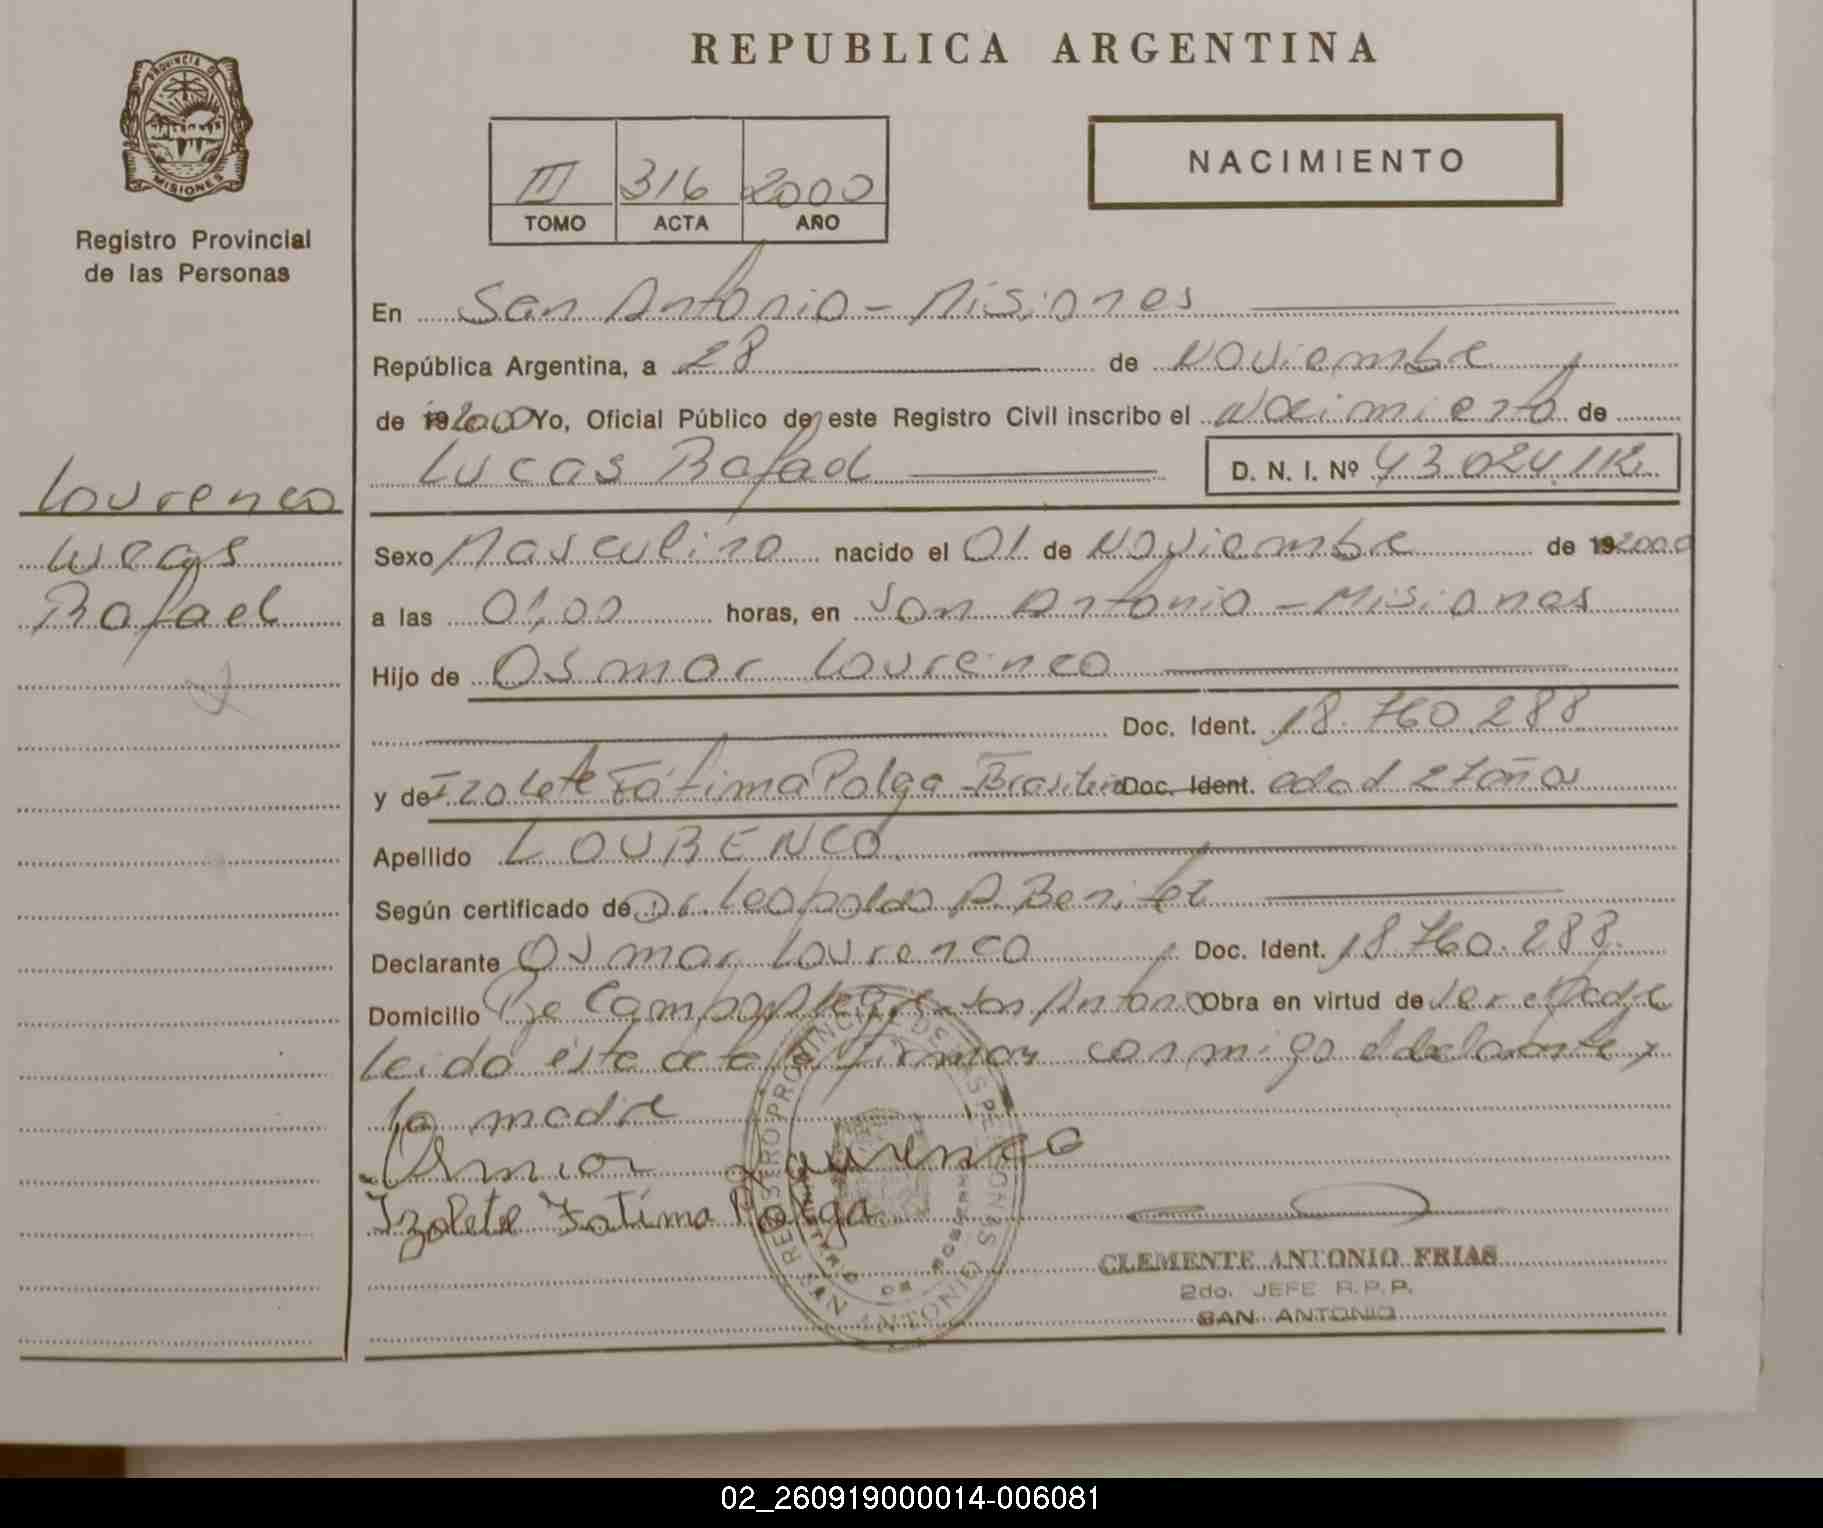 REPUBLICA ARGENTINA
PROVINCIA D MISIONES
Registro Provincial
de las Personas
III 316 2000
TOMO ACTA AÑO
NACIMIENTO
En San Antonio - Misiones
República Argentina, a 28 de Noviembre
de 192000 Yo, Oficial Público de este Registro Civil inscribo el Nacimiento de
Lucas Rafael D. N. I. Nº 43.024.112
Lourenco
Lucas
Rafael
Sexo Masculino nacido el 01 de Noviembre de 192000
a las 01,00 horas, en San Antonio - Misiones
Hijo de Osmar Lourenco
Doc. Ident. 18.760.288
y de Izolete Fátima Polga - Brasilera Doc. Ident. edad 27 años
Apellido LOURENCO
Según certificado de Dr. Leopoldo A. Benitez
Declarante Osmar Lourenco Doc. Ident. 18.760.288
Domicilio San Antonio Obra en virtud de ser el Padre
Leido éste acta firman conmigo el declarante y
la madre
Osmar Lourenco
Izolete Fatima Polga
REGISTRO PROVINCIAL DE LAS PERSONAS
SAN ANTONIO
CLEMENTE ANTONIO FRIAS
2do. JEFE R.P.P.
SAN ANTONIO
02_260919000014-006081